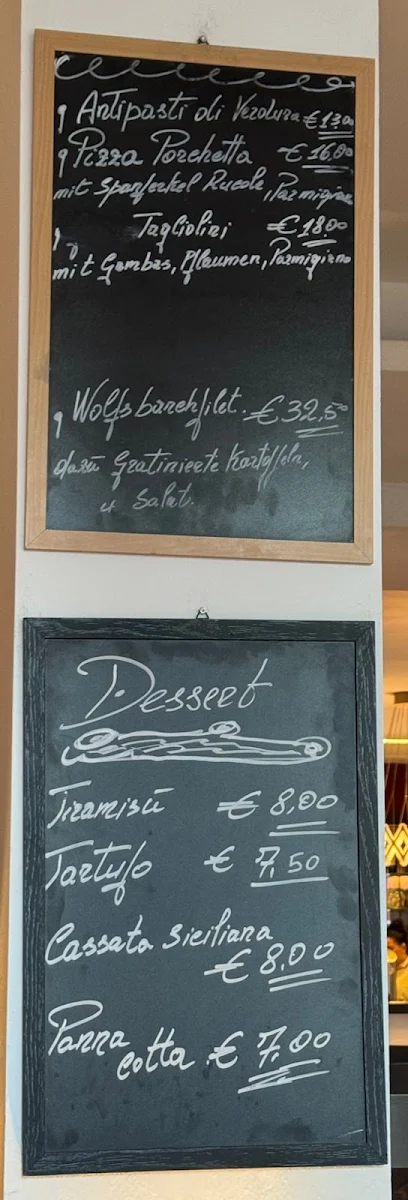 Antipasti di Verdura € 13.00
Pizza Porchetta € 16.00
mit Spanferkel Rucola, Parmigiano
Tagliolini € 18.00
mit Gambas, Pflaumen, Parmigiano
Wolfsbarchfilet. € 32,50
dazu Gratinierte Kartoffeln,
u Salat.
Dessert
Tiramisù € 8,00
Tartufo € 7,50
Cassata Siciliana
€ 8,00
Panna
cotta € 7,00